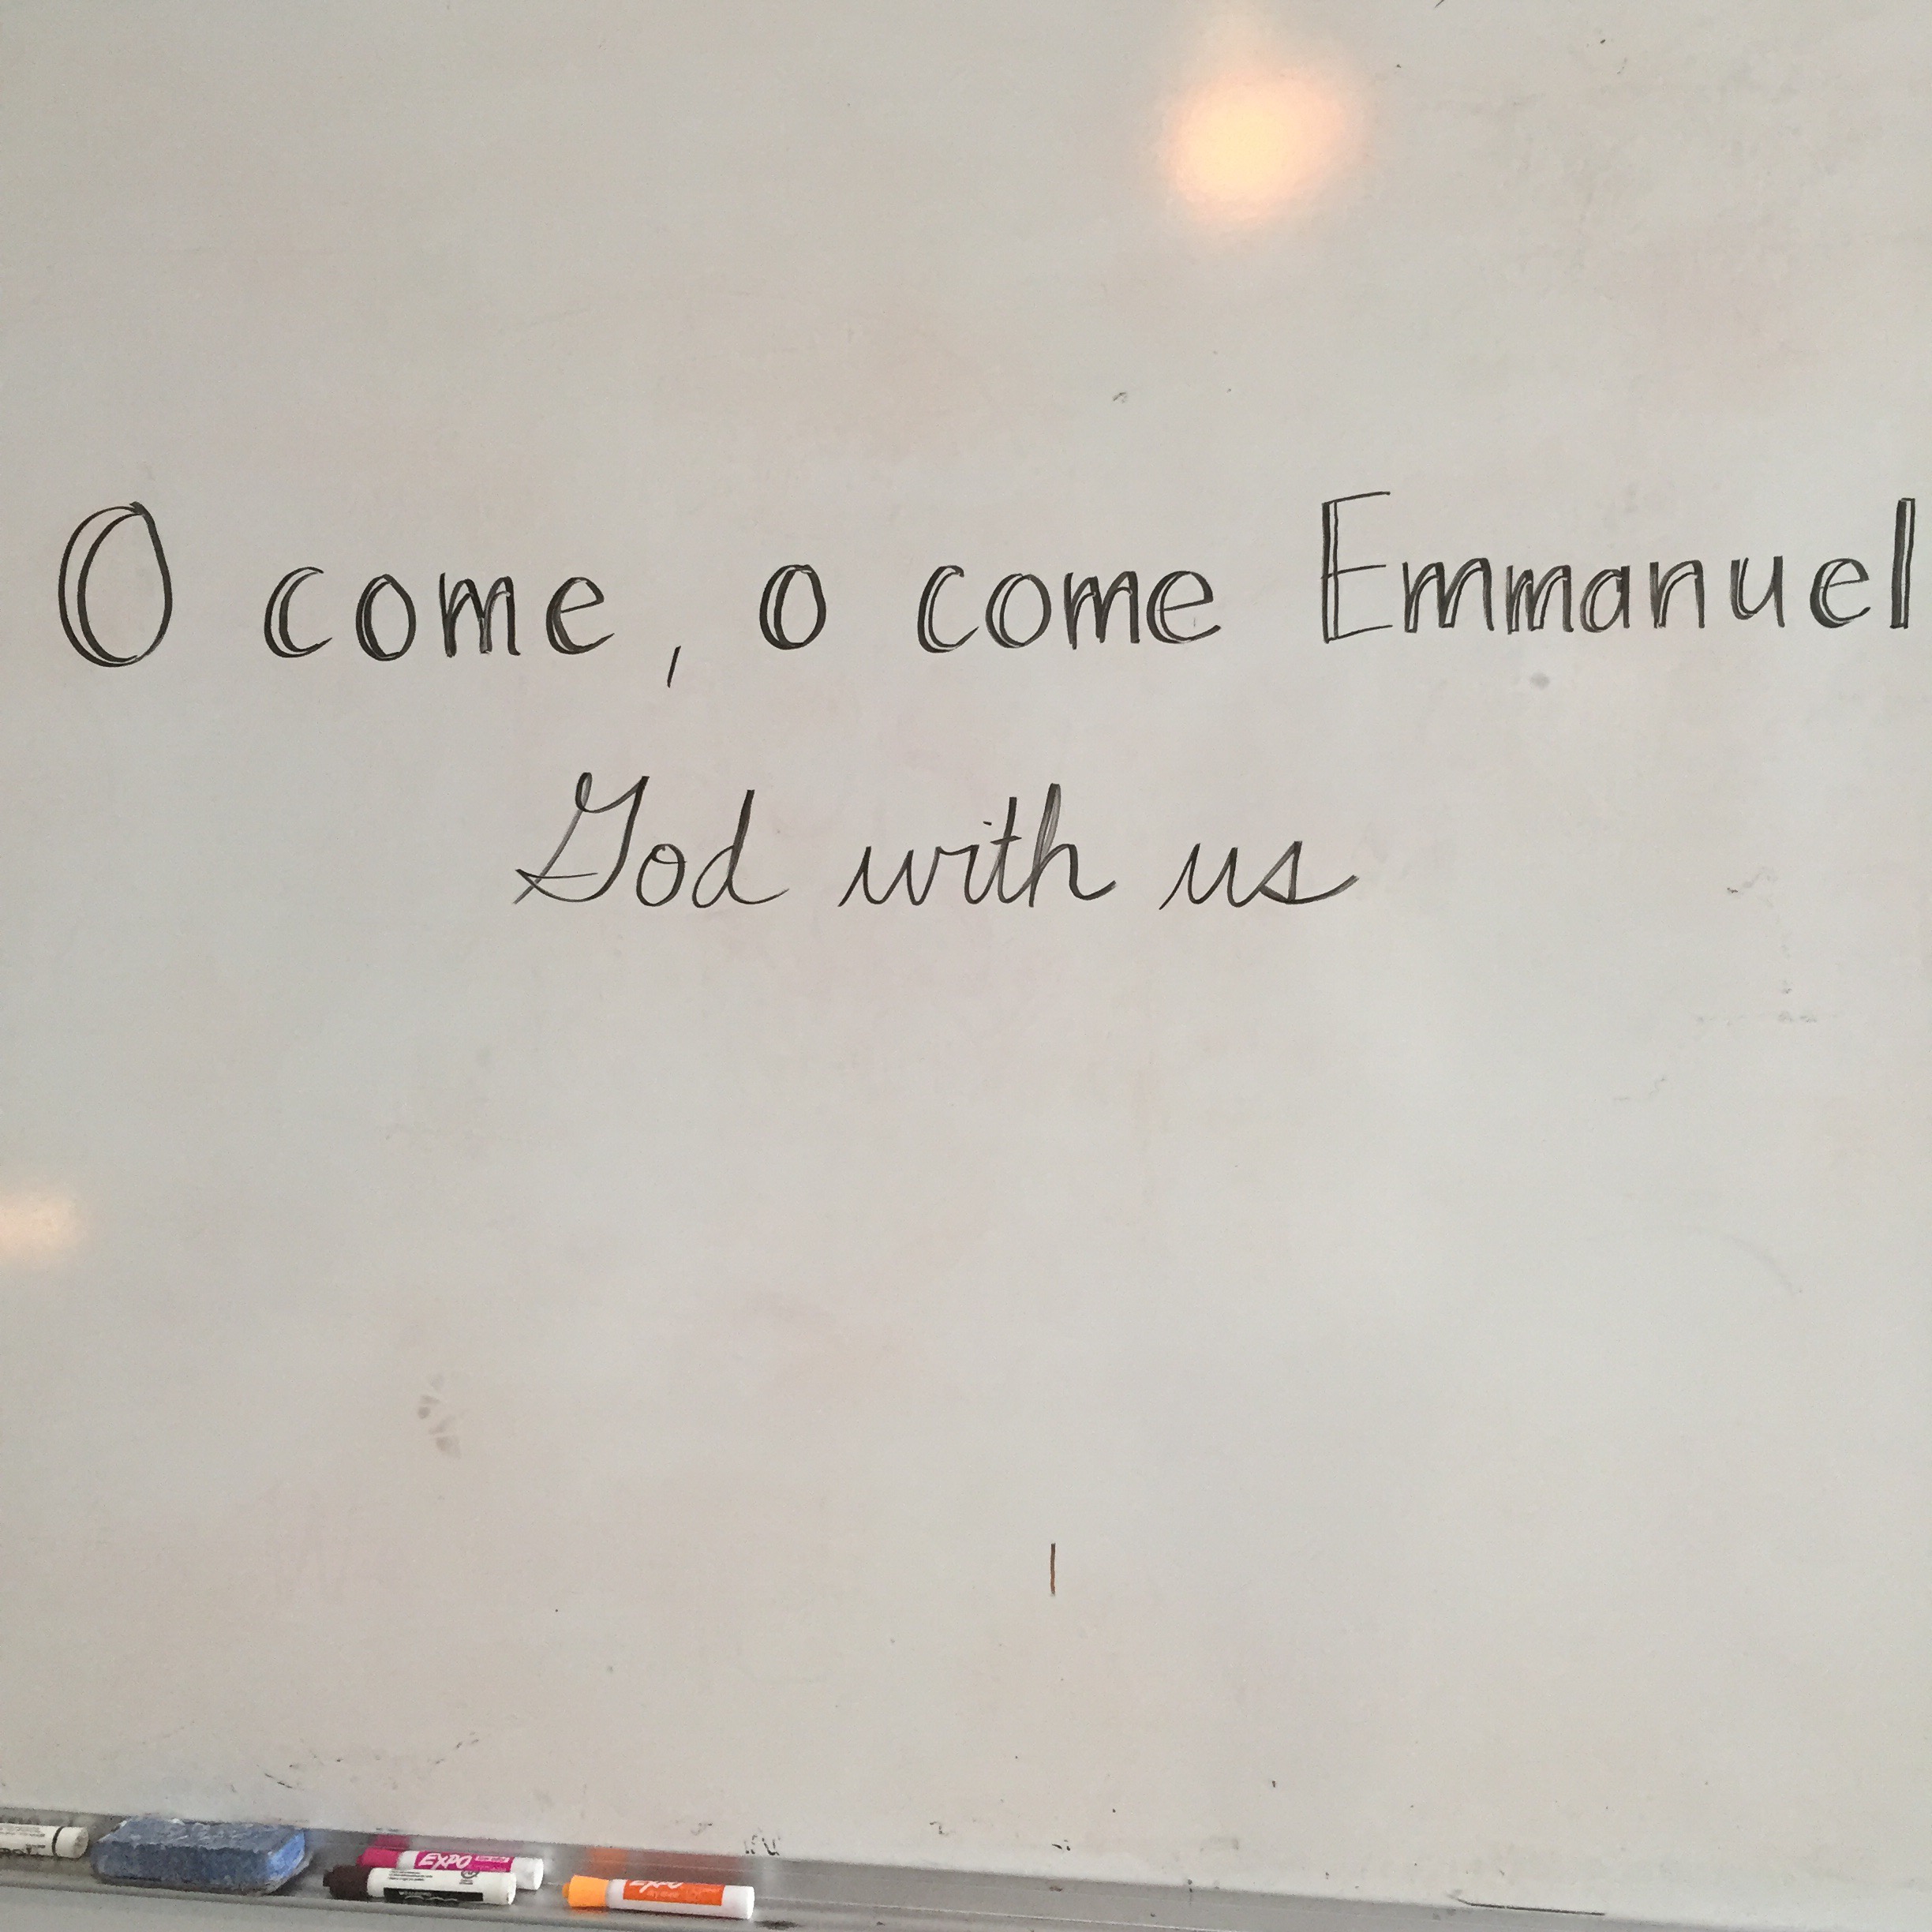 O come, o come Emmanuel
God with us
EXPO
EXPO